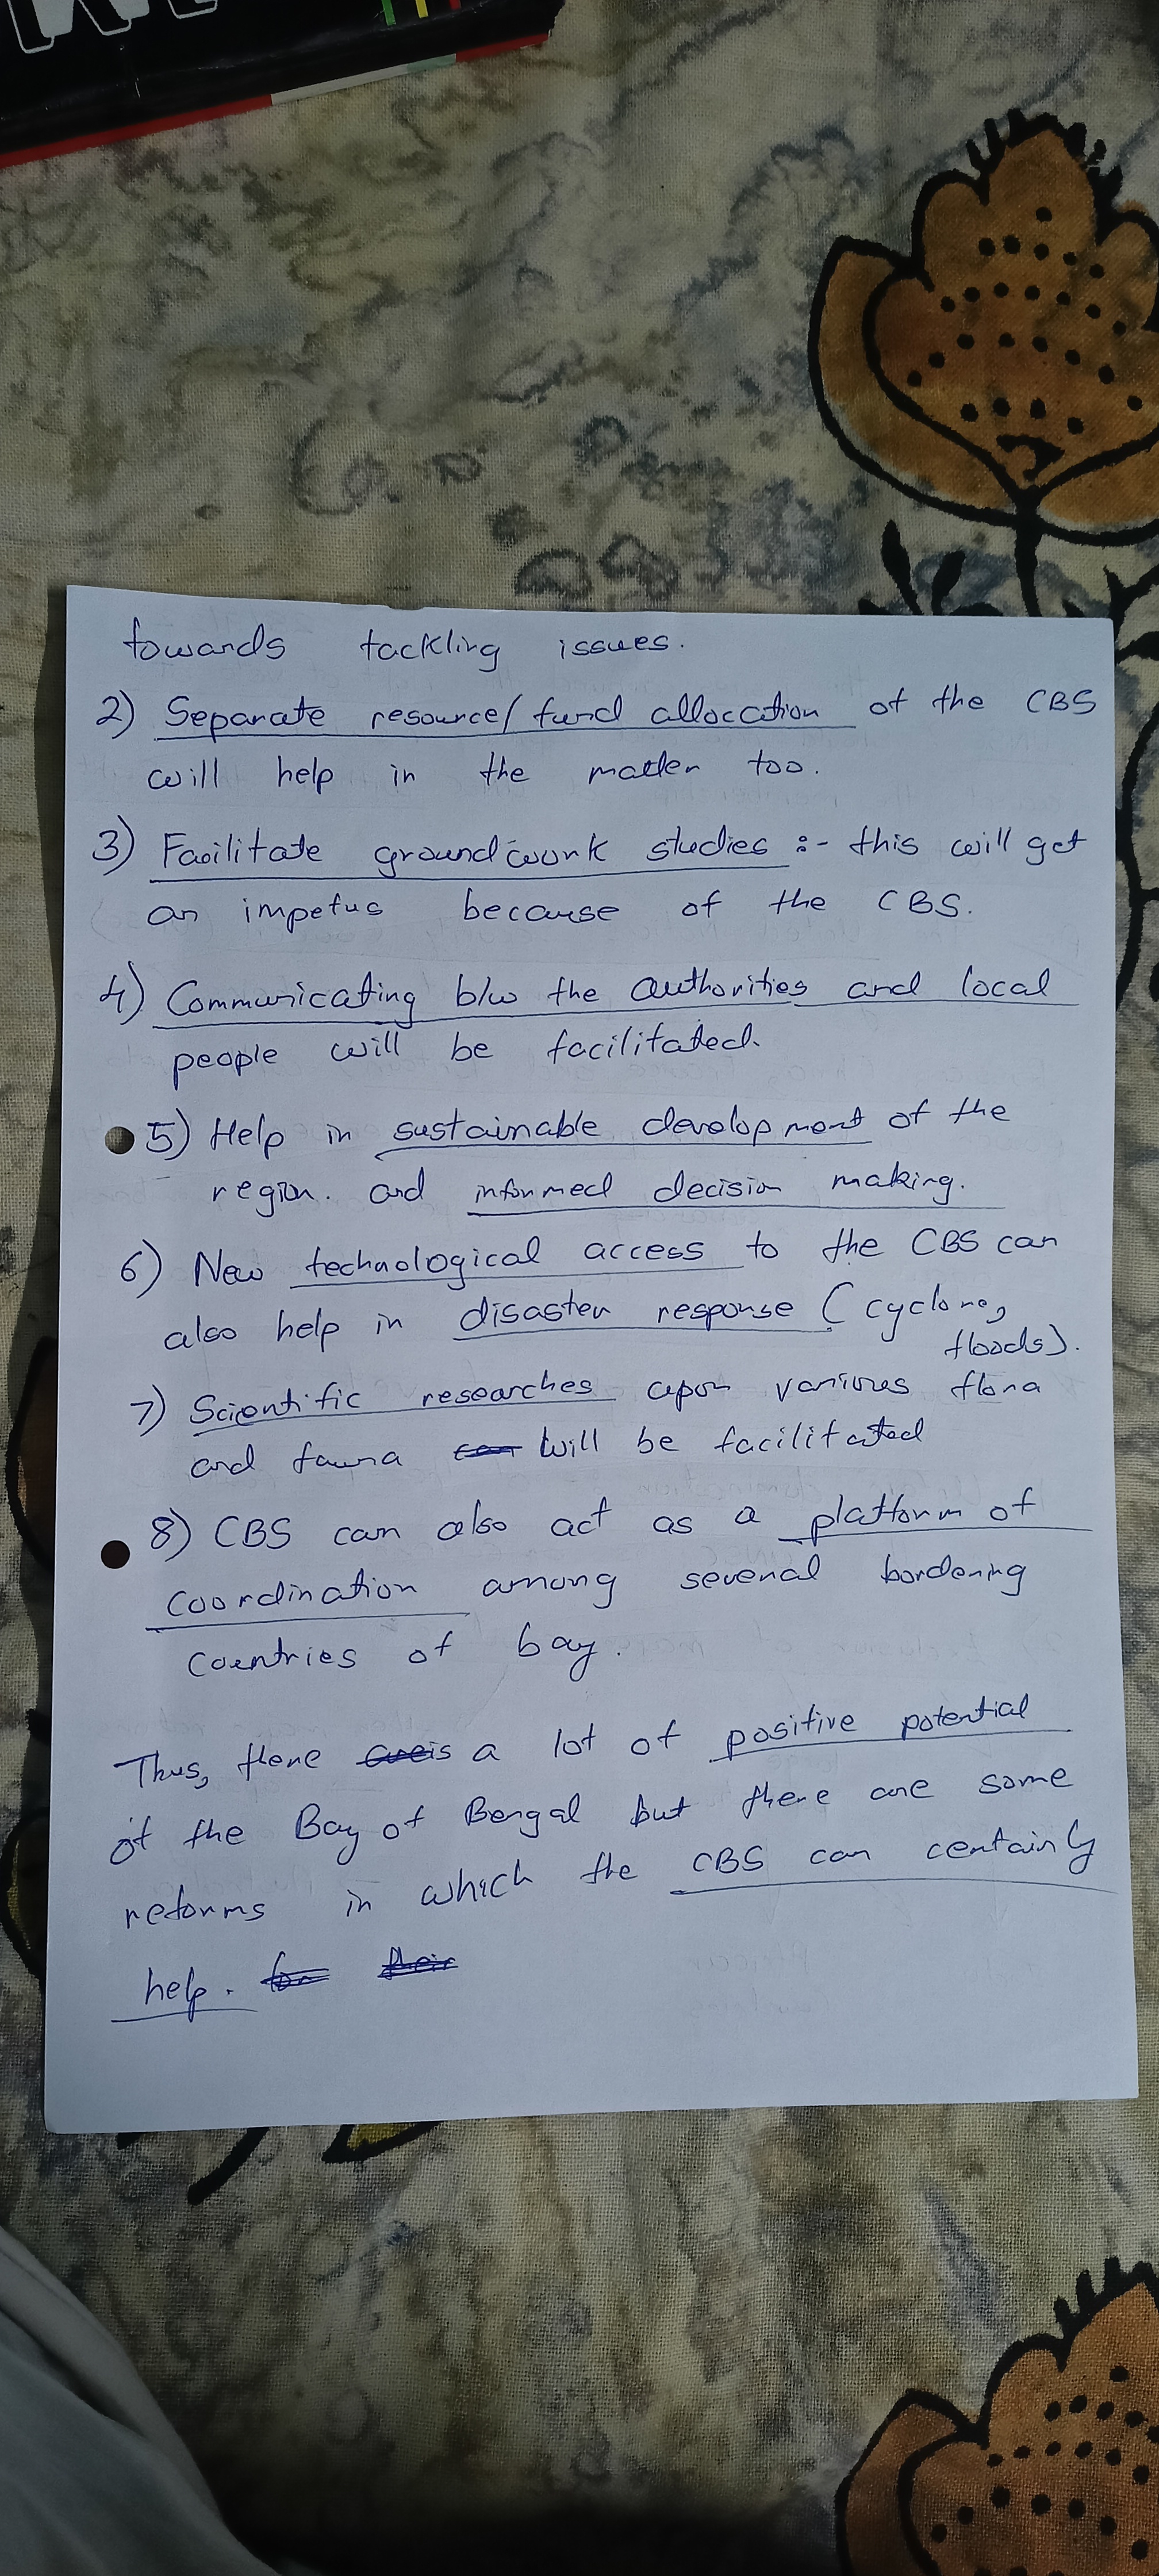 towards tackling issues.
2) Separate resource/fund allocation of the CBS
will help in the matter too.
3) Facilitate groundwork studies :- this will get
an impetus because of the CBS.
4) Communicating b/w the authorities and local
people will be facilitated.
5) Help in sustainable development of the
region. and informed decision making.
6) New technological access to the CBS can
also help in disaster response (cyclone,
floods).
7) Scientific researches upon various flora
and fauna can will be facilitated
8) CBS can also act as a platform of
coordination among several bordering
countries of bay.
Thus, there is a lot of positive potential
of the Bay of Bengal but there are some
reforms in which the CBS can certainly
help. for their